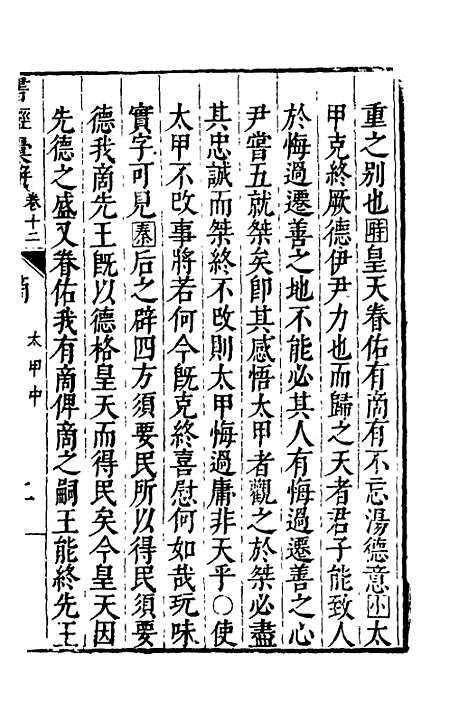 重之别也𤲞皇天眷佑有商有不忘湯德意小太
甲克終厥德伊尹力也而歸之天者君子能致人
於悔過遷善之地不能必其人有悔過遷善之心
尹嘗五就桀矣即其感悟太甲者觀之於桀必盡
其忠誠而桀終不改則太甲悔過庸非天乎○使
太甲不改事將若何今旣克終喜慰何如哉玩味
實字可見秦后之辟四方須要民所以得民須要
德我商先王旣以德格皇天而得民矣今皇天因
先德之盛又眷佑我有商俾商之嗣王能終先王
書經彙解 卷十二 商 太甲中 二